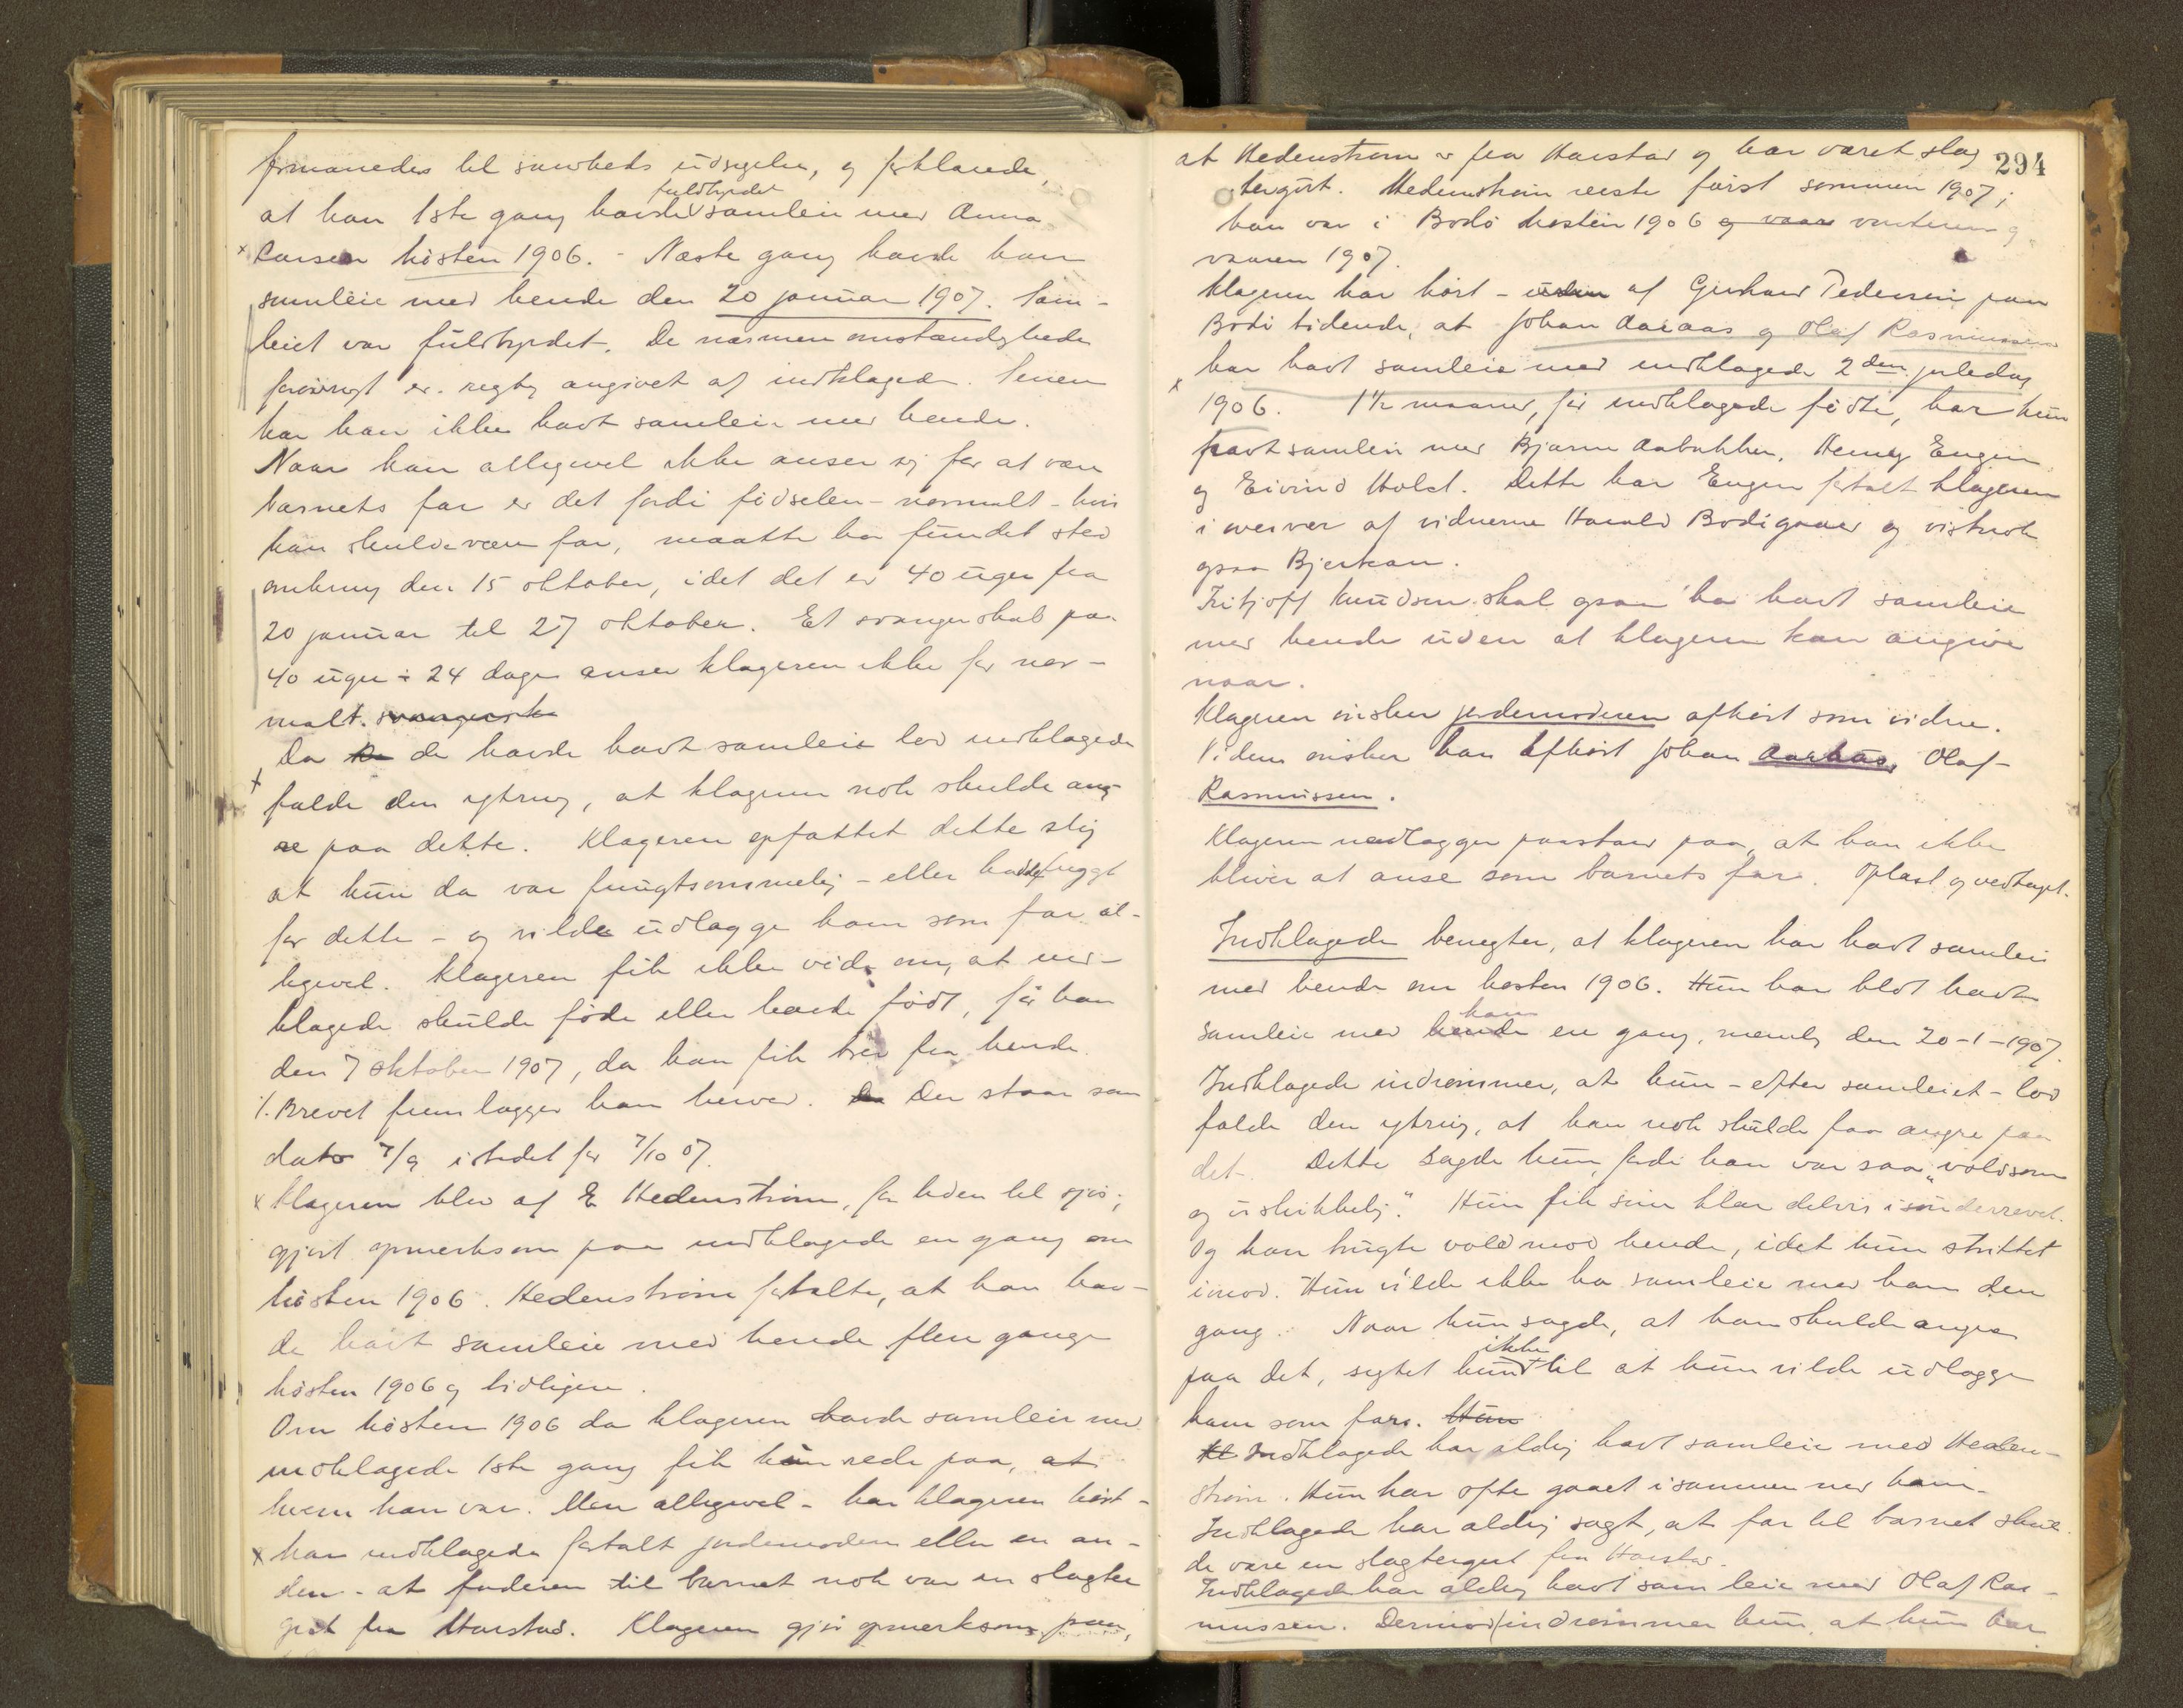 formanedes til sandheds udsigelse, og forklarede,
at han 1ste gang havde fuldbyrdet samleie med Anna
x Larsen høsten 1906. - Næste gang havde han
samleie med hende den 20 januar 1907. Sam-
leiet var fuldbyrdet. De nærmere omstændigheder
forøvrigt er rigtig angivet af indklagede. Senere
har han ikke havt samleie med hende.
Naar han alligevel ikke anser sig for at være
barnets far er det fordi fødselen - normalt - hvis
han skulde være far, maatte ha fundet sted
omkring den 15 oktober, idet det er 40 uger fra
20 januar til 27 oktober. Et svangerskab paa
40 uger ÷ 24 dage anser klageren ikke for nor-
malt. svangersk
Da de havde havt samleie lod indklagede
x falde den ytring, at klageren nok skulde ang-
re paa dette. Klageren opfattet dette slig
at hun da var frugtsommelig - eller havde frygt
for dette - og vilde udlægge ham som far al-
ligevel. Klageren fik ikke vide om, at ind-
klagede skulde føde eller havde født, før han
den 7 oktober 1907, da han fik brev fra hende.
1. Brevet fremlægger han herved. Der staar som
dato 7/9 istedet for 7/10 07.
x Klageren blev af E Hedenstrøm, for tiden til sjøs;
gjort opmerksom paa indklagede en gang om
høsten 1906. Hedenstrøm fortalte, at han hav-
de havt samleie med hende flere gange
høsten 1906 og tidligere.
Om høsten 1906 da klageren havde samleie med
indklagede 1ste gang fik hun rede paa, at
hvem han var. Men alligevel - har klageren hørt -
x har indklagede fortalt jordemoderen eller en an-
den - at faderen til barnet nok var en slagter
gut fra Harstad. Klageren gjør opmerksom paa,
294
at Hedenstrøm er fra Harstad og har været slag
tergut. Hedenstrøm reiste først sommeren 1907;
han var i Bodø høsten 1906 og vaar vinteren og
vaaren 1907.
Klageren har hørt - af Gerhard Pedersen paa
Bodø tidende, at Johan Aaraas og Olaf Rasmussen
har havt samleie med indklagede 2den juledag
x 1906. 1 1/2 maaned, før indklagede fødte, har hun
havt samleie med Bjarne Aabakken, Henry Eugen
og Eivind Holst. Dette har Eugen fortalt klageren
i overvær af vidnerne Harald Bodøgaard og vistnok
ogsaa Bjerkan.
Fritjoff Knudsen skal ogsaa ha havt samleie
med hende uden at klageren kan angive
naar.
Klageren ønsker jordemoderen afhørt som vidne.
Videre ønsker han afhørt Johan Aaraas, Olaf
Rasmussen.
Klageren nedlægger paastand paa, at han ikke
bliver at anse som barnets far. Oplæst og vedtaget.
Indklagede benegter, at klageren har havt samleie
med hende om høsten 1906. Hun har blot havt
samleie med hende ham en gang, nemlig den 20-1-1907.
Indklagede indrømmer, at hun - efter samleiet - lod
falde den ytring, at han nok skulde faa angre paa
det. Dette sagde hun, fordi han var saa "voldsom
og uskikkelig." Hun fik sine klær delvis i sønderrevet.
Og han brugte vold mod hende, idet hun strittet
imod. Hun vilde ikke ha samleie med ham den
gang. Naar hun sagde, at han skulde angre
paa det, sigtet hun ikke til at hun vilde udlægge
ham som far. Hun
Kl Indklagede har aldrig havt samleie med Heden-
strøm. Hun har ofte gaaet isammen med ham.
Indklagede har aldrig sagt, at far til barnet skul
de være en slagtergut fra Harstad.
Indklagede har aldrig havt samleie med Olaf Ras-
mussen. Derimod indrømmer hun, at hun har